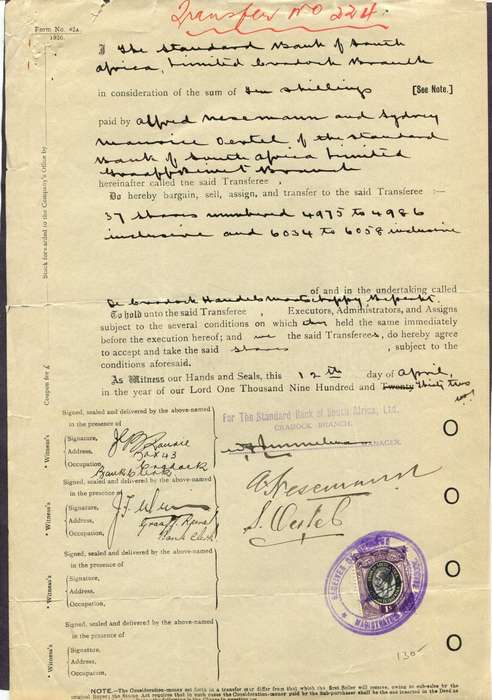 Transfer No 224.
Form No. 42A.
1926.
I The Standard Bank of South
Africa, Limited Cradock Branch
in consideration of the sum of Ten Shillings [See Note.]
paid by Alfred Nesemann and Sydney
Maurice Oertel, of the Standard
Bank of South Africa Limited
Graaff Reinet Branch
hereinafter called the said Transferee ,
Do hereby bargain, sell, assign, and transfer to the said Transferee :—
37 Shares numbered 4975 to 4986
inclusive and 6034 to 6058 inclusive
of and in the undertaking called
De Cradock Handels Maatschappy Beperkt.
To hold unto the said Transferee , Executors, Administrators, and Assigns
subject to the several conditions on which they held the same immediately
before the execution hereof; and we the said Transferees, do hereby agree
to accept and take the said Shares , subject to the
conditions aforesaid.
As Witness our Hands and Seals, this 12th day of April,
in the year of our Lord One Thousand Nine Hundred and Twenty Thirty two
Signed, sealed and delivered by the above-named
in the presence of
Signature,
Address, Box 43
Occupation, Bank Clerk Cradock
For The Standard Bank of South Africa, Ltd.
CRADOCK BRANCH.
MANAGER.
Signed, sealed and delivered by the above-named
in the presence of
Signature,
Address, Graaff Reinet
Occupation, Bank Clerk
A Nesemann
S. Oertel
Signed, sealed and delivered by the above-named
in the presence of
Signature,
Address,
Occupation,
Signed, sealed and delivered by the above-named
in the presence of
Signature,
Address,
Occupation,
Stock forwarded to the Company's Office by
Coupon for £
Witness's
Witness's
Witness's
Witness's
RECEIVER OF REVENUE
MAGISTRATE
130-
NOTE.—The Consideration-money set forth in a transfer may differ from that which the first Seller will receive, owing to sub-sales by the
original Buyer; the Stamp Act requires that in such cases the Consideration-money paid by the Sub-purchaser shall be the one inserted in the Deed